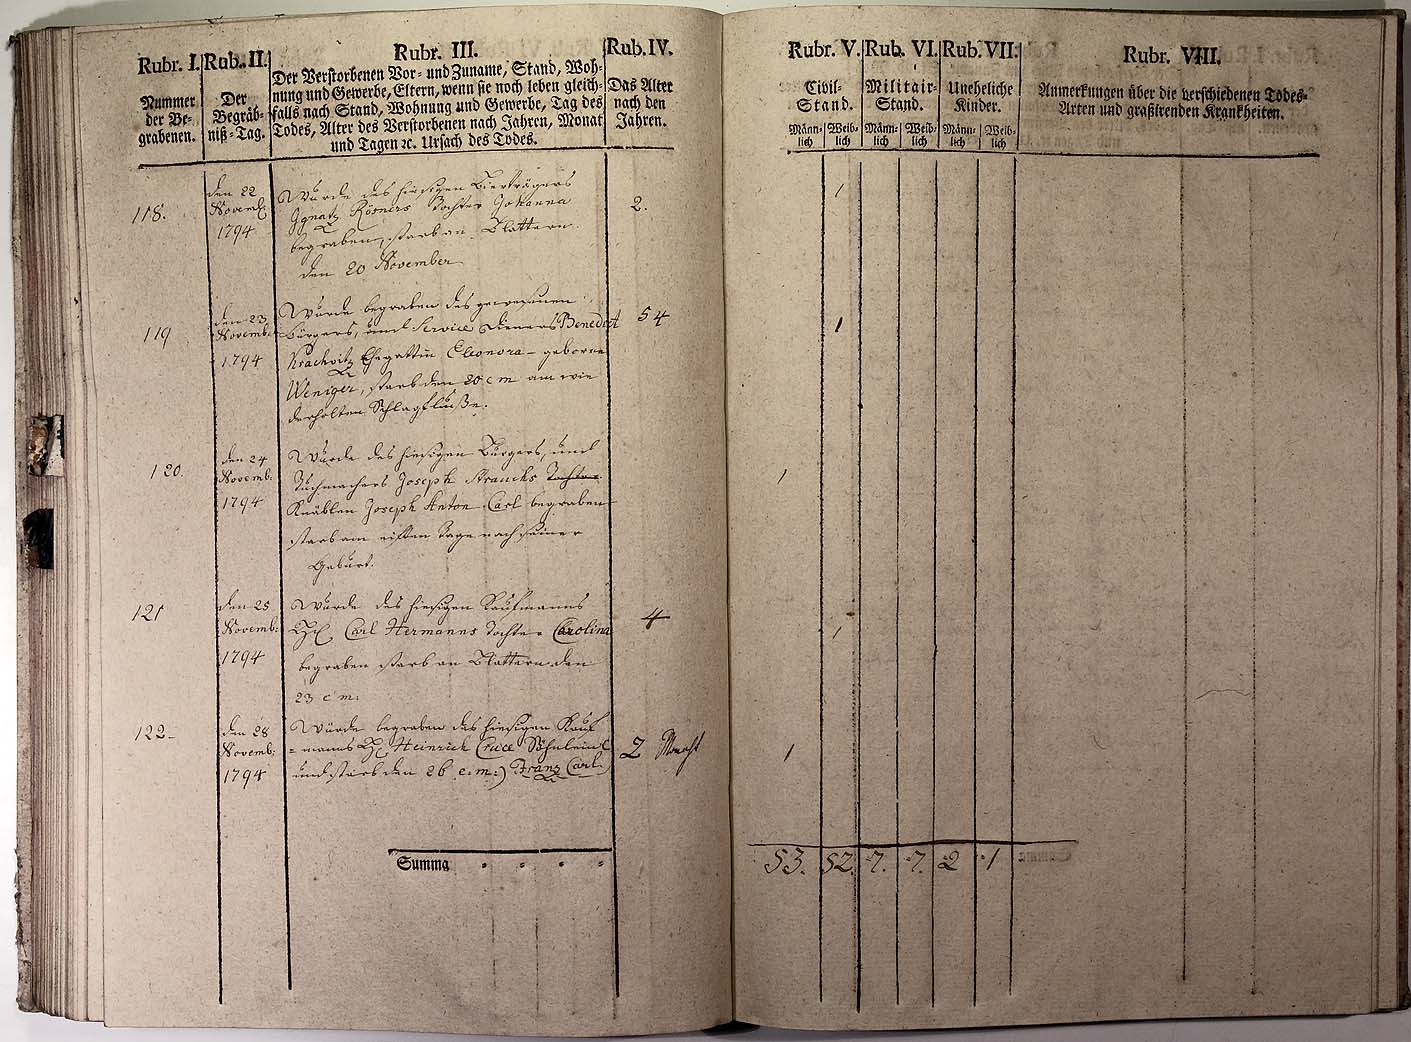 Rubr. I.
Nummer
der Be-
grabenen.
Rub. II.
Der
Begräb-
niß-Tag.
Rubr. III.
Der Verstorbenen Vor- und Zuname, Stand, Woh-
nung und Gewerbe, Eltern, wenn sie noch leben gleich-
falls nach Stand, Wohnung und Gewerbe, Tag des
Todes, Alter des Verstorbenen nach Jahren, Monat
und Tagen ꝛc. Ursach des Todes.
Rub. IV.
Das Alter
nach den
Jahren.
118.
den 22
Novemb.
1794
Wurde des hiesigen Bierträgers
Ignatz Rösners Tochter Johanna
begraben, starb an Blattern
den 20 November
2.
119
den 23
Novemb.
1794
Wurde begraben des gewesenen
Bürgers, und Service Dieners Benedict
Krachvitz Ehegattin Eleonora geborne
Weniger, starb den 20 c m am wie
derholten Schlagfluße.
54
120.
den 24
Novemb.
1794
Wurde des hiesigen Bürgers, und
Tuchmachers Joseph Strauchs Tochter
Knäblen Joseph Anton Carl begraben
starb am eilften Tage nach seiner
Geburt.
121
den 25
Novemb:
1794
Wurde des hiesigen Kaufmanns
H. Carl Hermanns Tochter Carolina
begraben starb an Blattern den
23 c m:
4
122-
den 28
Novemb:
1794
Wurde begraben des hiesigen Kauf
=manns H. Heinrich Cruce Söhnlein (
und starb den 26 c. m:) Franz Carl.
2 Monath
Summa - - - -
Rubr. V.
Civil-
Stand.
Männ-
lich
Weib-
lich
Rub. VI.
Militair-
Stand.
Männ-
lich
Weib-
lich
Rub. VII.
Uneheliche
Kinder.
Männ-
lich
Weib-
lich
Rubr. VIII.
Anmerkungen über die verschiedenen Todes-
Arten und graßirenden Krankheiten.
1
1
1
1
1
53. 52. 7. 7. 2 1